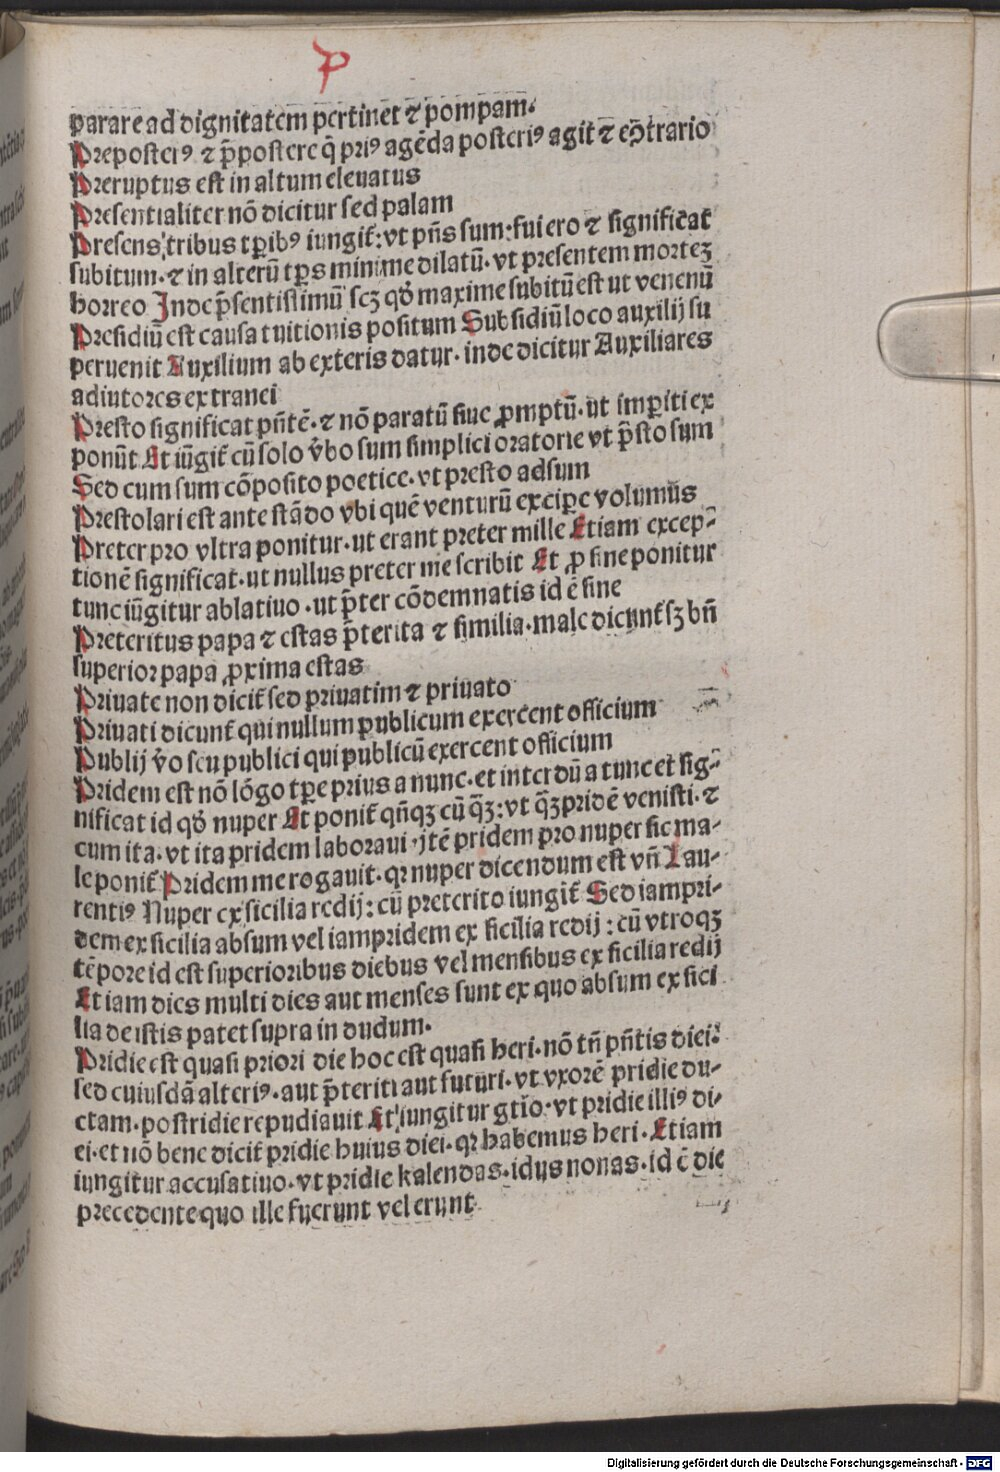 P
parare ad dignitatem pertinet ⁊ pompam.
Preposterꝰ ⁊ p̄postere q̄ priꝰ agēda posteriꝰ agit ⁊ eↄ̄trario
Preruptus est in altum eleuatus
Presentialiter nō dicitur sed palam
Presens tribus tꝑibꝰ iungit̄: vt pn̄s sum: fui ero ⁊ significat
subitum. ⁊ in alterū tꝑs minime dilatū. vt presentem morteꝫ
horreo Inde p̄sentissimū scꝫ qđ maxime subitū est ut venenū
Presidiū est causa tuitionis positum Subsidiū loco auxilij su
peruenit Auxilium ab exteris datur. inde dicitur Auxiliares
adiutores extranei
Presto significat pn̄tē. ⁊ nō paratū siue ꝓmptū. ut imꝑiti ex
ponūt Et iūgit̄ cū solo v̄bo sum simplici oratorie vt p̄sto sum
Sed cum sum cōposito poetice. vt presto adsum
Prestolari est ante stādo vbi quē venturū excipe volumus
Preter pro vltra ponitur. ut erant preter mille Etiam excep-
tionē significat. ut nullus preter me scribit Et ꝓ sine ponitur
tunc iūgitur ablatiuo . ut p̄ter cōdemnatis id ē sine
Preteritus papa ⁊ estas p̄terita ⁊ similia. male dicunt̄ sꝫ bn̄
superior papa ꝓxima estas
Priuate non dicit̄ sed priuatim ⁊ priuato
Priuati dicunt̄ qui nullum publicum exercent officium
Publij v̄o seu publici qui publicū exercent officium
Pridem est nō lōgo tꝑe prius a nunc. et interdū a tunc et sig-
nificat id qđ nuper Et ponit̄ qn̄qꝫ cū q̄ꝫ: vt q̄ꝫ pridē venisti. ⁊
cum ita. vt ita pridem laboraui . jtē pridem pro nuper sic ma-
le ponit̄ Pridem me rogauit. qꝛ nuper dicendum est vn̄ Lau-
rentiꝰ Nuper ex sicilia redij: cū preterito iungit̄ Sed iampri-
dem ex sicilia absum vel iampridem ex sicilia redij : cū vtroqꝫ
tēpore id est superioribus diebus vel mensibus ex sicilia redij
Et iam dies multi dies aut menses sunt ex quo absum ex sici
lia de istis patet supra in dudum.
Pridie est quasi priori die hoc est quasi heri. nō tn̄ pn̄tis diei:
sed cuiusdā alteriꝰ. aut p̄teriti aut futuri. vt vxorē pridie du-
ctam. postridie repudiauit Et iungitur gtīo: vt pridie illiꝰ di-
ei. et nō bene dicit̄ pridie huius diei. qꝛ habemus heri. Etiam
iungitur accusatiuo. vt pridie kalendas. idus nonas. id ē die
precedente quo ille fuerunt vel erunt
Digitalisierung gefördert durch die Deutsche Forschungsgemeinschaft - DFG